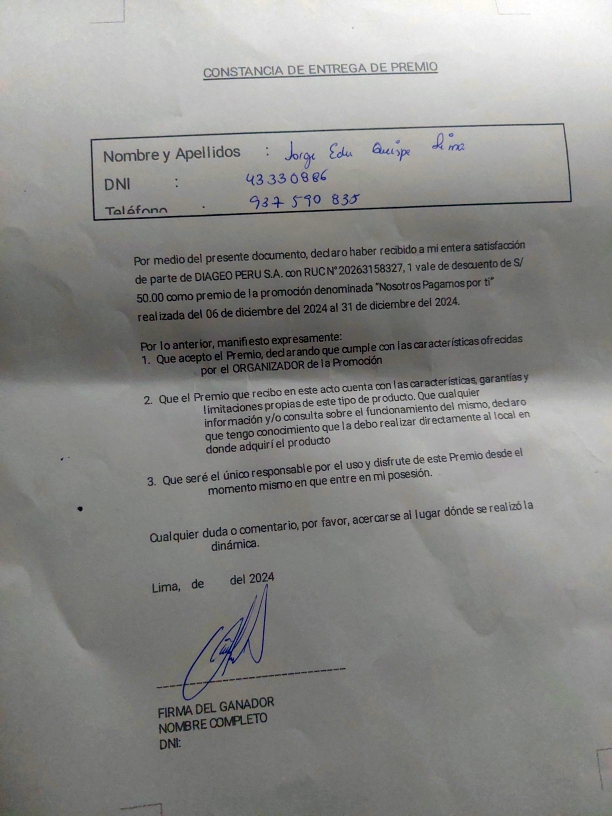 CONSTANCIA DE ENTREGA DE PREMIO
Nombre y Apellidos : Jorge Edu Quispe Lima
DNI : 43330886
Teléfono : 937 590 835
Por medio del presente documento, declaro haber recibido a mi entera satisfacción
de parte de DIAGEO PERU S.A. con RUC N° 20263158327, 1 vale de descuento de S/
50.00 como premio de la promoción denominada "Nosotros Pagamos por ti"
realizada del 06 de diciembre del 2024 al 31 de diciembre del 2024.
Por lo anterior, manifiesto expresamente:
1. Que acepto el Premio, declarando que cumple con las características ofrecidas
por el ORGANIZADOR de la Promoción
2. Que el Premio que recibo en este acto cuenta con las características, garantías y
limitaciones propias de este tipo de producto. Que cualquier
información y/o consulta sobre el funcionamiento del mismo, declaro
que tengo conocimiento que la debo realizar directamente al local en
donde adquirí el producto
3. Que seré el único responsable por el uso y disfrute de este Premio desde el
momento mismo en que entre en mi posesión.
Cualquier duda o comentario, por favor, acercarse al lugar dónde se realizó la
dinámica.
Lima, de del 2024
FIRMA DEL GANADOR
NOMBRE COMPLETO
DNI: